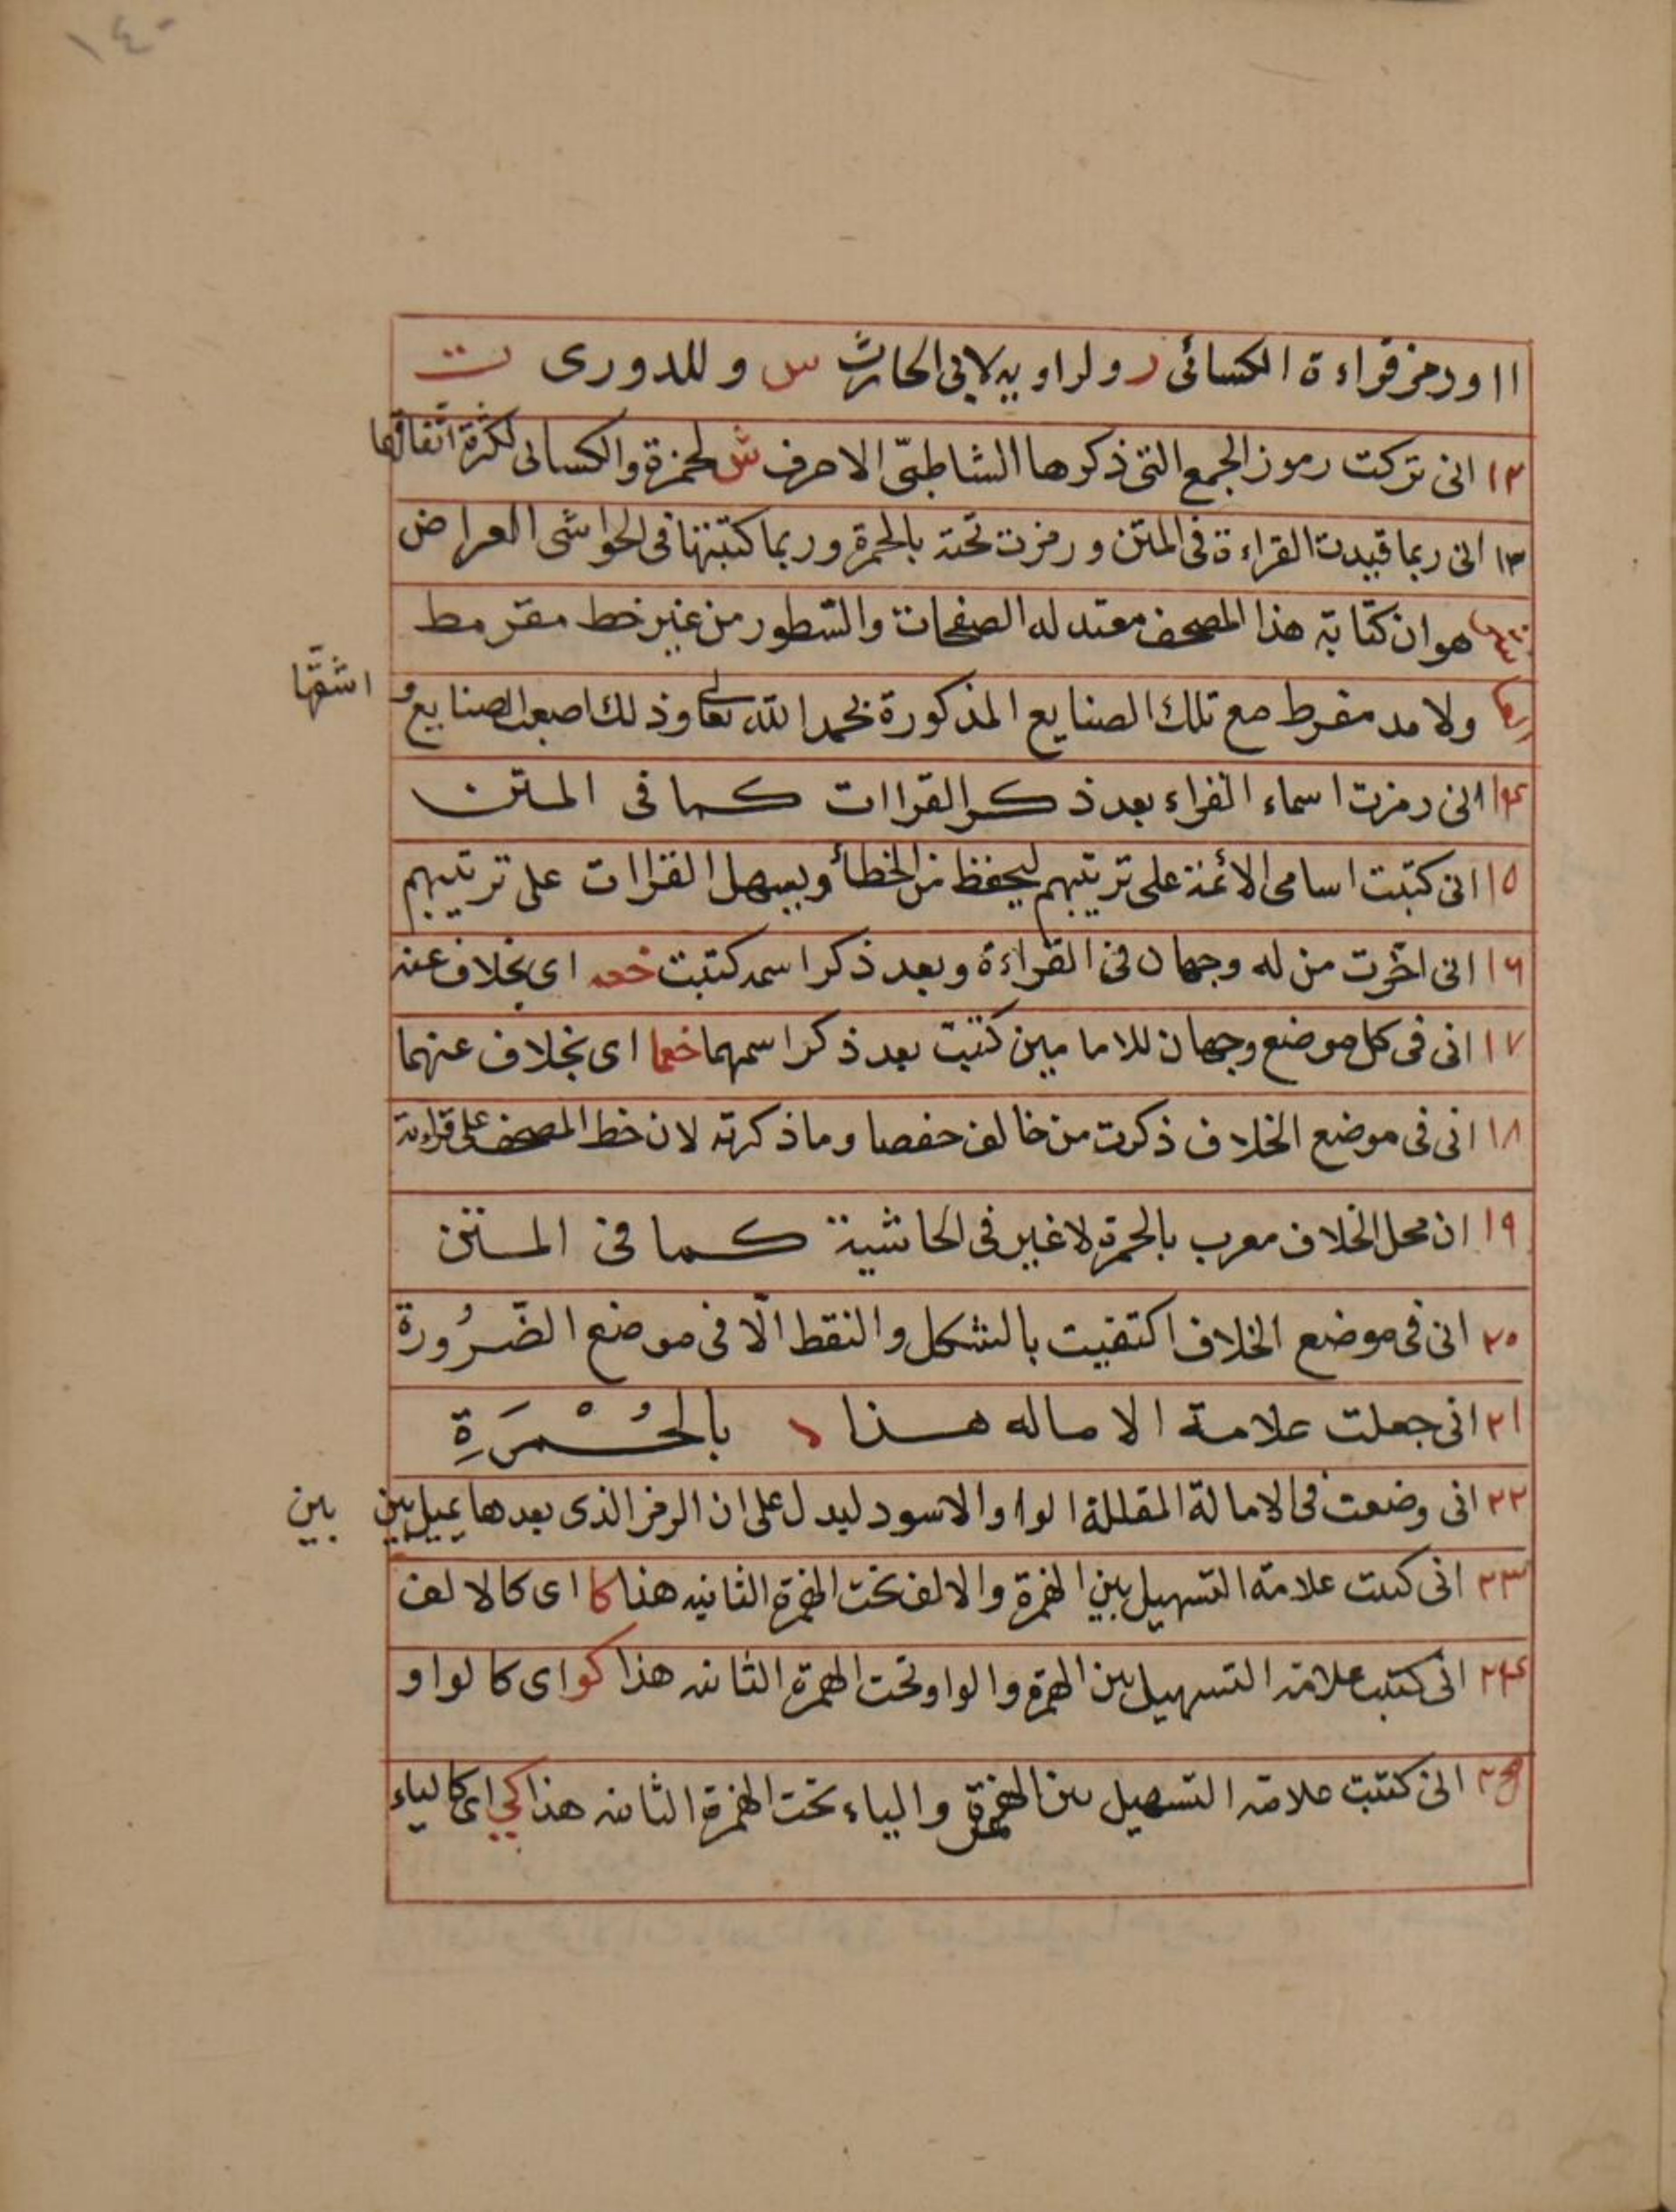 ١٤٠
١١ ورمز قراءة الكسائى ر ولراويه لابى الحارث س وللدورى ت
١٢ انى تركت رموز الجمع التى ذكرها الشاطبىّ الا حرف ش لحمزة والكسائى لكثرة اتفاقهما
١٣ انى ربما قيدت القراءة فى المتن ورمزت تحته بالحمرة وربما كتبتها فى الحواشى العراض
هو ان كتابة هذا المصحف معتدله الصفحات والسّطور من غير خط مقرمط
ولا مد مفرط مع تلك الصنايع المذكورة بحمد الله تعالى وذلك اصعب الصنايع و اشقّها
١٤ انى رمزت اسماء القراء بعد ذكر القراات كما فى المتن
١٥ انى كتبت اسامى الائمة على ترتيبهم ليحفظ من الخطأ ويسهل القراات على ترتيبهم
١٦ انى اخّرت من له وجهان فى القراءة وبعد ذكر اسمه كتبت خعه اى بخلاف عنه
١٧ انى فى كل موضع وجهان للامامين كتبت بعد ذكر اسمهما خعما اى بخلاف عنهما
١٨ انى فى موضع الخلاف ذكرت من خالف حفصا وما ذكرته لان خط المصحف على قراءته
١٩ ان محل الخلاف معرب بالحمرة لا غير فى الحاشية كما فى المتن
٢٠ انى فى موضع الخلاف اكتفيت بالشكل والنقط الّا فى موضع الضّرُورة
٢١ انى جعلت علامة الاماله هذا بالحُمْرَةِ
٢٢ انى وضعت فى الامالة المقللة الواو الاسود ليدل على ان الرمز الذى بعدها يميل بين بين
٢٣ انى كتبت علامة التسهيل بين الهمزة والالف تحت الهمزة الثانيه هنا كا اى كالالف
٢٤ انى كتبت علامة التسهيل بين الهمزة والواو تحت الهمزة الثانيه هذا كو اى كالواو
٢٥ انى كتبت علامة التسهيل بين الهمزة والياء تحت الهمزة الثانيه هذا كي اى كالياء